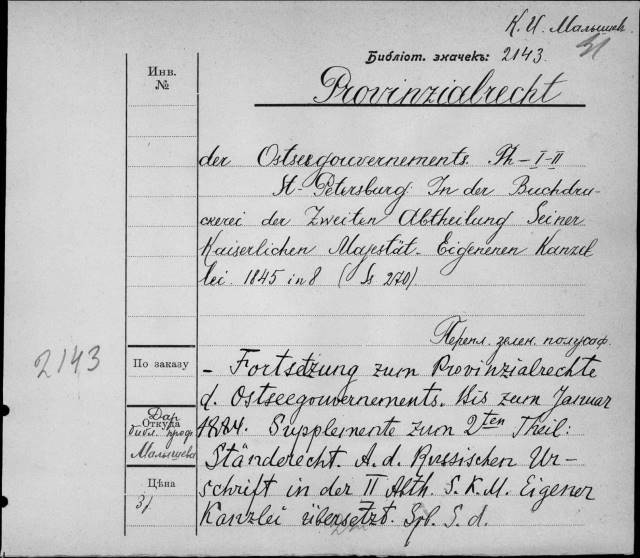 К. И. Малышев.
51
Библіот. значекъ: 2143.
Инв.
№
Provinzialrecht
der Ostseegouvernements. Th-I-II
St-Petersburg: In der Buchdru-
ckerei der Zweiten Abtheilung Seiner
Kaiserlichen Majestät. Eigenenen Kanzel
lei. 1845 in 8 (Ss 270)
Перепл. зелен. полусаф.
2143
По заказу
Откуда
Дар
библ. проф.
Малышева
Цѣна
3/
- Fortsetzung zum Provinzialrechte
d. Ostseegouvernements. Bis zum Januar
Supplemente zum 2ten Theil:
Ständerecht. A. d. Russischen Ur-
schrift in der II Abth. S. K. M. Eigener
Kanzlei übersetzt. Spb. S. d.